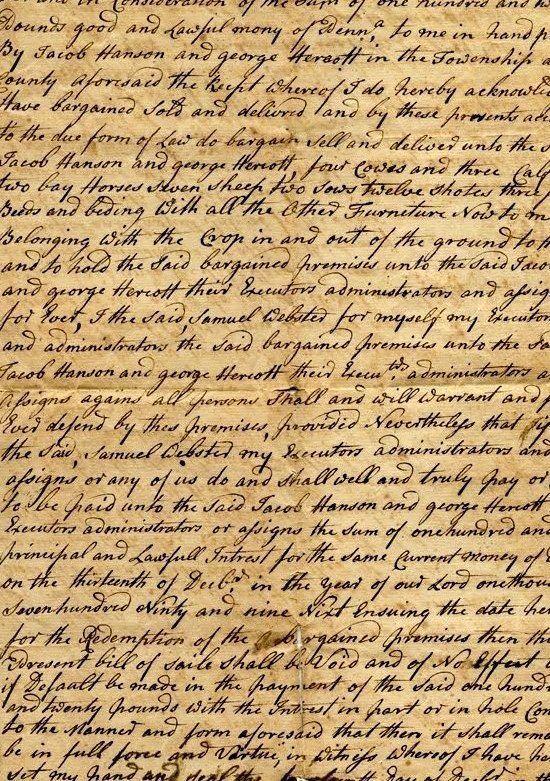 and in Consideration of the Sum of one hundred and
Pounds good and Lawful mony of Penn.a to me in hand p
By Jacob Hanson and george Hercott in the Township a
County aforesaid the Rect whereof I do hereby acknowled
Have bargained Sold and deliverd and by these presents
to the due form of Law do bargain Sell and deliver unto the s
Jacob Hanson and george Hercott, four Cowes and three Cal
two bay Horses Seven Sheep two Sows twelve Shotes three
Beeds and beding With all the Other Furneture Now to m
Belonging with the Crop in and out of the ground to h
and to hold the Said bargained premises unto the Said Jaco
and george Hercott their Executors administrators and assig
for Ever, I the Said, Samuel Webster for myself my Executor
and administrators the Said bargained premises unto the Sa
Jacob Hanson and george Hercott their Execu.trs administrators a
assigns agains all persons Shall and will Warrant and
Ever defend by thes premises, provided Nevertheless that if
the Said, Samuel Webster my Executors administrators and
assigns or any of us do and Shall well and truly pay or
to be paid unto the Said Jacob Hanson and george Hercott
Executors administrators or assigns the Sum of onehundred and
principal and Lawfull Intrest for the Same Current money of
on the thirteenth of Decb.r in the year of our Lord onethou
Sevenhundred Ninty and nine Nixt Ensuing the date her
for the Redemption of the bargained premises then th
present bill of Saile Shall be Void and of No Effect
if Default be made in the payment of the Said one hund
and twenty pounds with the Intrest in part or in hole Con
to the Manner and form aforesaid that then it Shall rema
be in full force and Virtue, in Witness Whereof I have h
Set my hand and Seal the